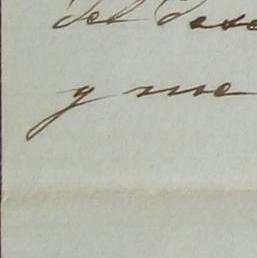 del dese
y me